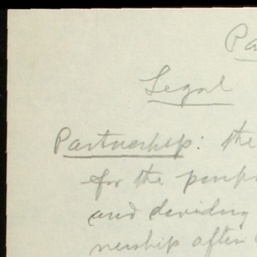 Pa
Legal
Partnership: the
for the purpo
and dividing
nership often